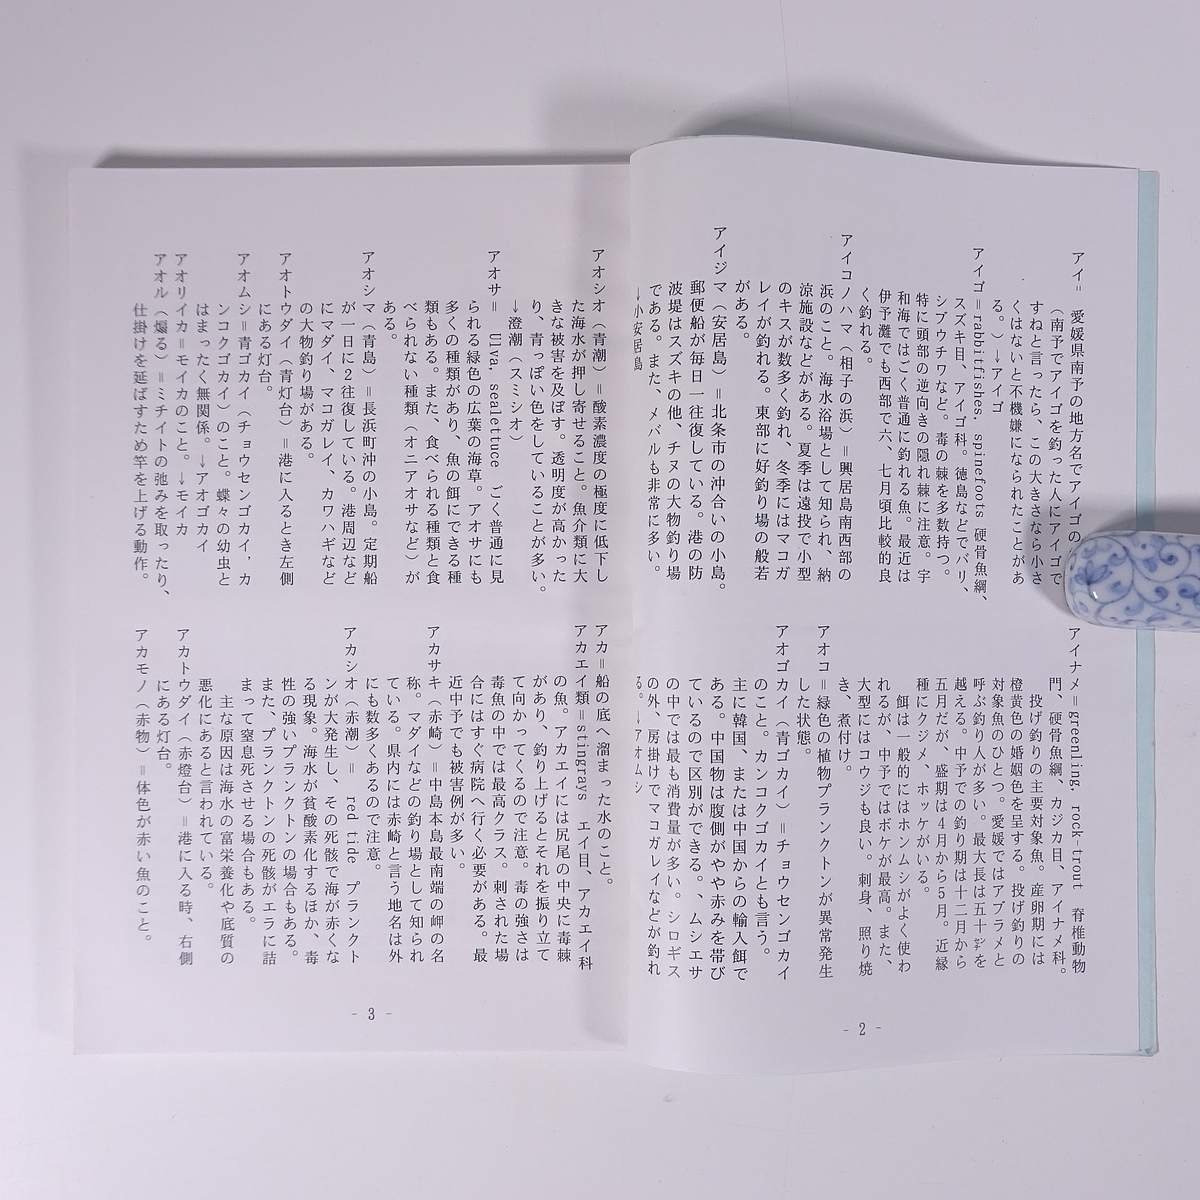 アイ＝ 愛媛県南予の地方名でアイゴの
（南予でアイゴを釣った人にアイゴで
すねと言ったら、この大きさなら小さ
くはないと不機嫌になられたことがあ
る。）→アイゴ
アイゴ＝rabbitfishes, spinefoots 硬骨魚綱、
スズキ目、アイゴ科。徳島などでバリ、
シブウチワなど。毒の棘を多数持つ。
特に頭部の逆向きの隠れ棘に注意。宇
和海ではごく普通に釣れる魚。最近は
伊予灘でも西部で六、七月頃比較的良
く釣れる。
アイコノハマ（相子の浜）＝興居島南西部の
浜のこと。海水浴場として知られ、納
涼施設などがある。夏季は遠投で小型
のキスが数多く釣れ、冬季にはマコガ
レイが釣れる。東部に好釣り場の般若
がある。
アイジマ（安居島）＝北条市の沖合いの小島。
郵便船が毎日一往復している。港の防
波堤はスズキの他、チヌの大物釣り場
である。また、メバルも非常に多い。
→小安居島
アイナメ＝greenling, rock-trout 脊椎動物
門、硬骨魚綱、カジカ目、アイナメ科。
投げ釣りの主要対象魚。産卵期には
橙黄色の婚姻色を呈する。投げ釣りの
対象魚のひとつ。愛媛ではアブラメと
呼ぶ釣り人が多い。最大長は五十㌢を
越える。中予での釣り期は十二月から
五月だが、盛期は４月から５月。近縁
種にクジメ、ホッケがいる。
餌は一般的にはホンムシがよく使わ
れるが、中予ではボケが最高。また、
大型にはコウジも良い。刺身、照り焼
き、煮付け。
アオコ＝緑色の植物プランクトンが異常発生
した状態。
アオゴカイ（青ゴカイ）＝チョウセンゴカイ
のこと。カンコクゴカイとも言う。
主に韓国、または中国からの輸入餌で
ある。中国物は腹側がやや赤みを帯び
ているので区別ができる。ムシエサ
の中では最も消費量が多い。シロギス
の外、房掛けでマコガレイなどが釣れ
る。→アオムシ
- 2 -
アオシオ（青潮）＝酸素濃度の極度に低下し
た海水が押し寄せること。魚介類に大
きな被害を及ぼす。透明度が高かった
り、青っぽい色をしていることが多い。
→澄潮（スミシオ）
アオサ＝ Ulva, sealettuce ごく普通に見
られる緑色の広葉の海草。アオサにも
多くの種類があり、魚の餌にできる種
類もある。また、食べられる種類と食
べられない種類（オニアオサなど）が
ある。
アオシマ（青島）＝長浜町沖の小島。定期船
が一日に２往復している。港周辺など
にマダイ、マコガレイ、カワハギなど
の大物釣り場がある。
アオトウダイ（青灯台）＝港に入るとき左側
にある灯台。
アオムシ＝青ゴカイ（チョウセンゴカイ，カ
ンコクゴカイ）のこと。蝶々の幼虫と
はまったく無関係。→アオゴカイ
アオリイカ＝モイカのこと。→モイカ
アオル（煽る）＝ミチイトの弛みを取ったり、
仕掛けを延ばすため竿を上げる動作。
アカ＝船の底へ溜まった水のこと。
アカエイ類＝stingrays エイ目、アカエイ科
の魚。アカエイには尻尾の中央に毒棘
があり、釣り上げるとそれを振り立て
て向かってくるので注意。毒の強さは
毒魚の中では最高クラス。刺された場
合にはすぐ病院へ行く必要がある。最
近中予でも被害例が多い。
アカサキ（赤崎）＝中島本島最南端の岬の名
称。マダイなどの釣り場として知られ
ている。県内には赤崎と言う地名は外
にも数多くあるので注意。
アカシオ（赤潮）＝ red tide プランクト
ンが大発生し、その死骸で海が赤くな
る現象。海水が貧酸素化するほか、毒
性の強いプランクトンの場合もある。
また、プランクトンの死骸がエラに詰
まって窒息死させる場合もある。
主な原因は海水の富栄養化や底質の
悪化にあると言われている。
アカトウダイ（赤燈台）＝港に入る時、右側
にある灯台。
アカモノ（赤物）＝体色が赤い魚のこと。
- 3 -